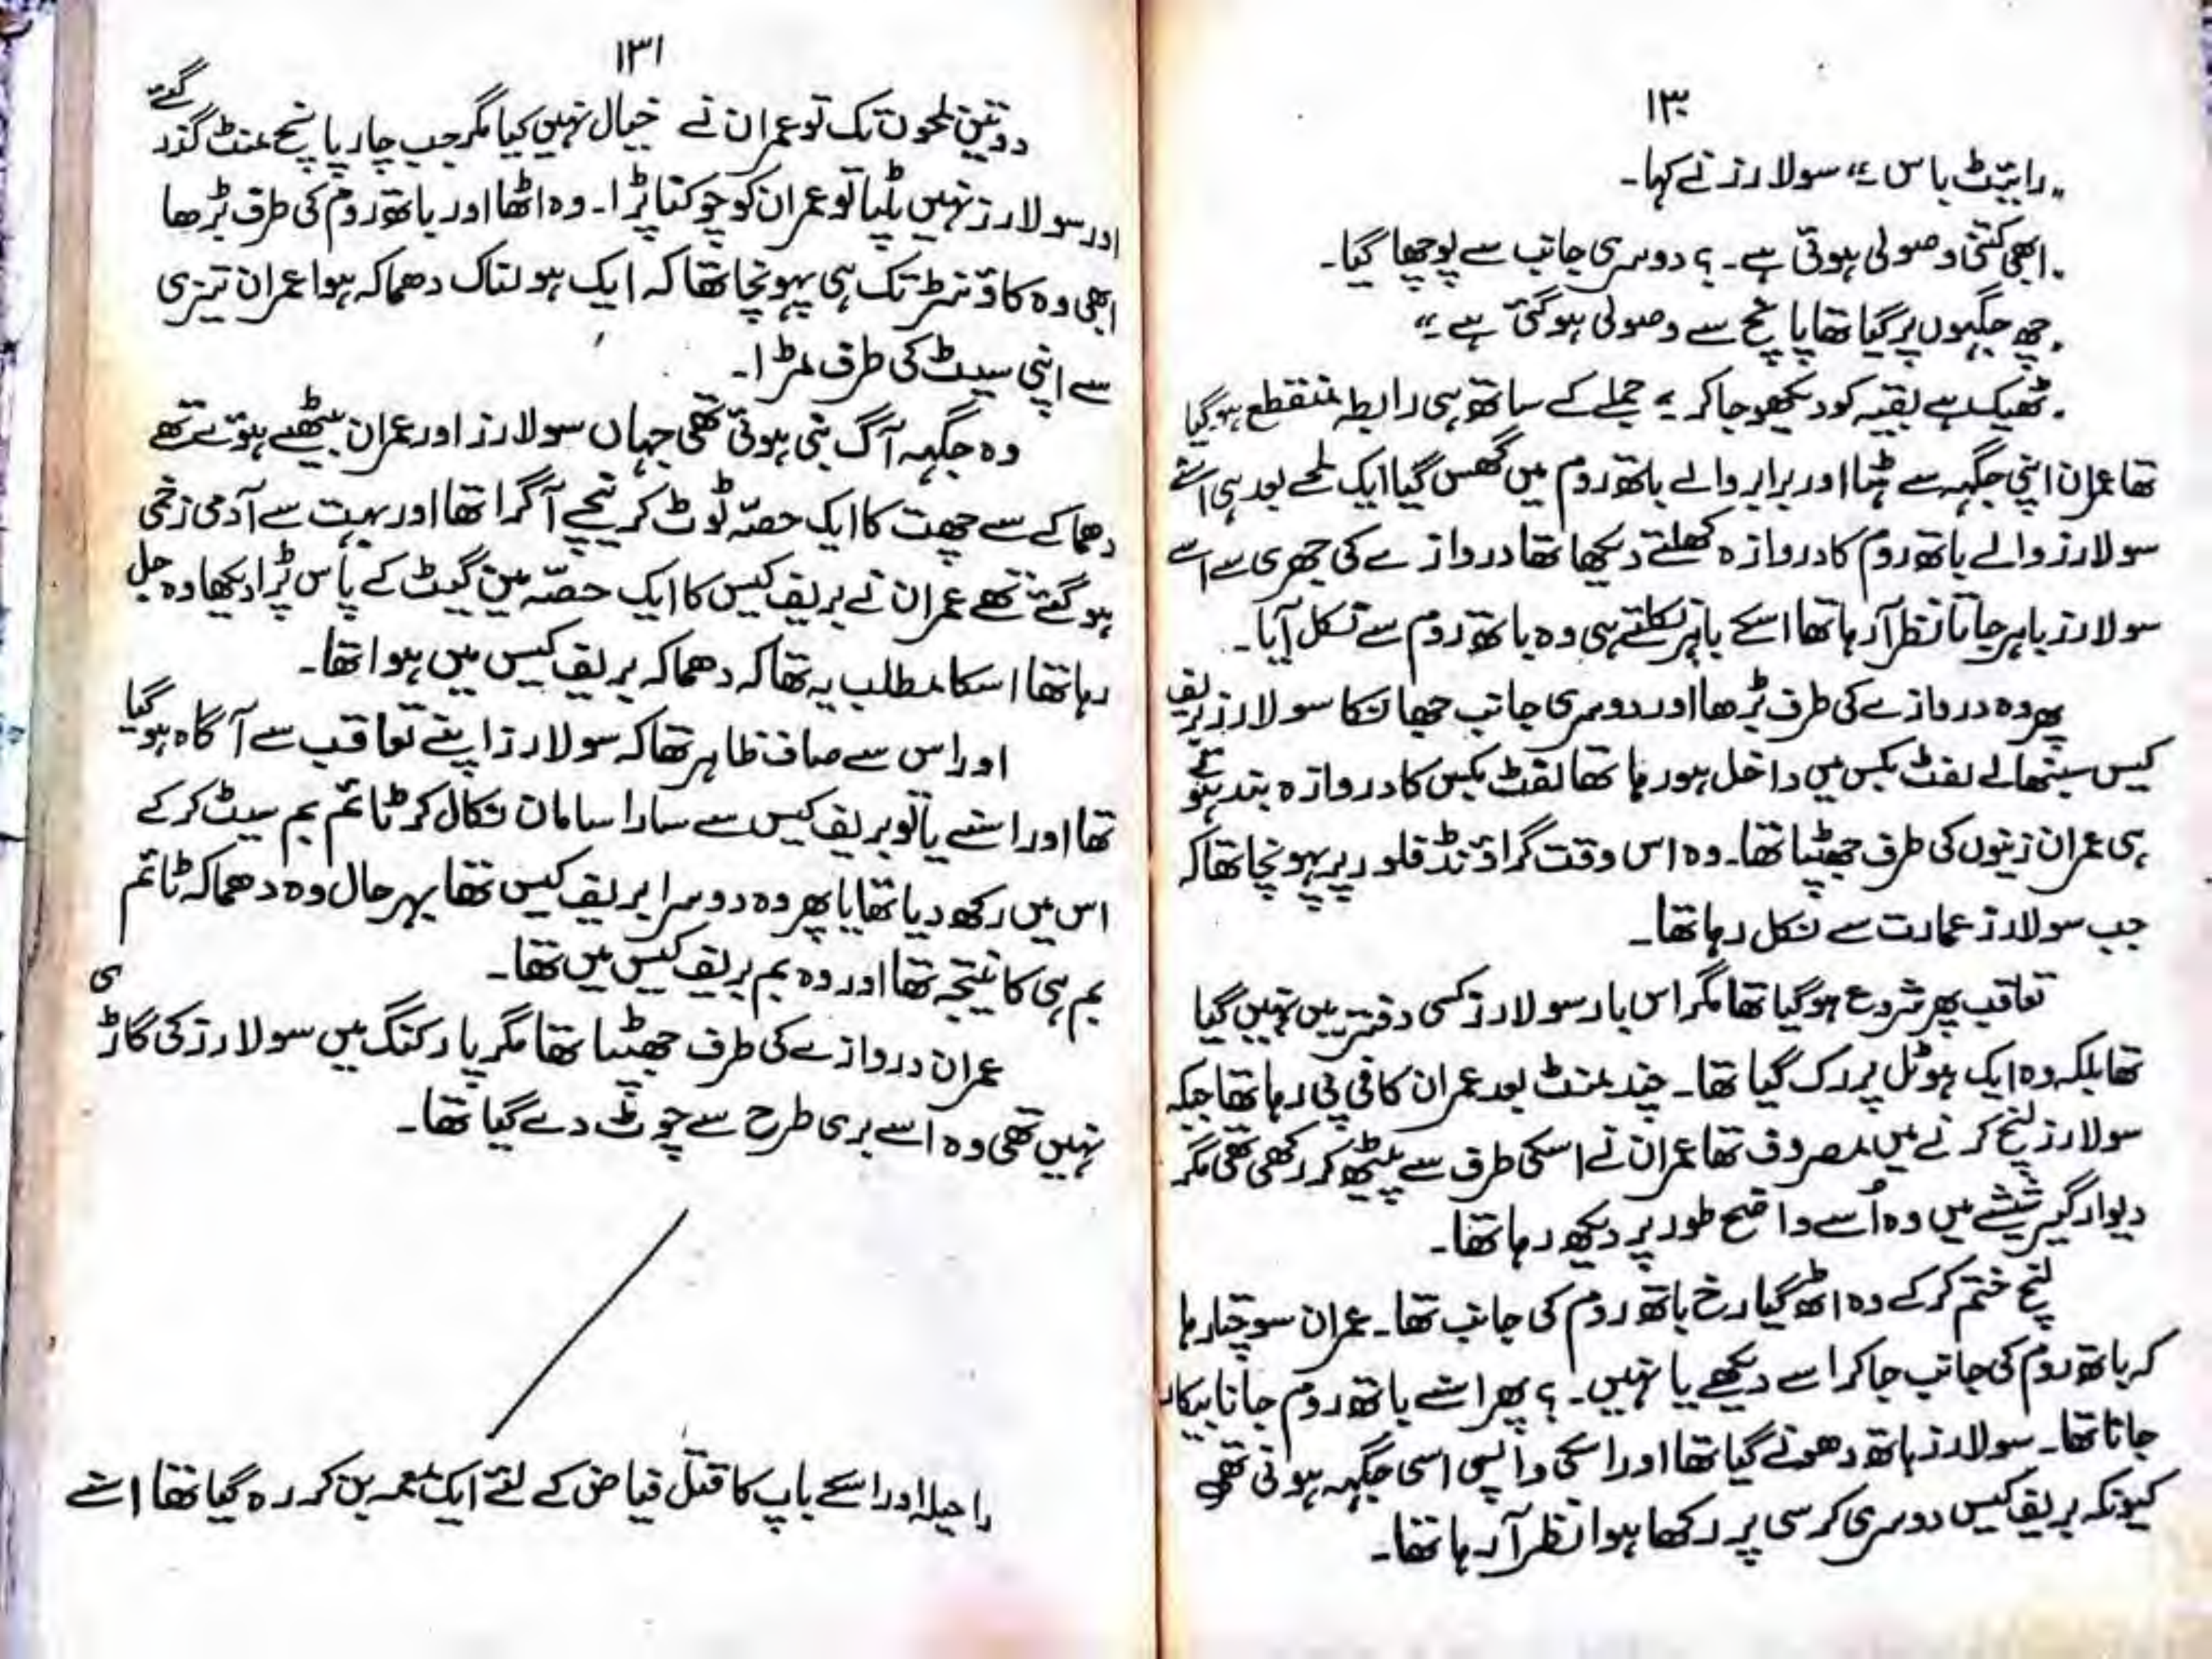 ۱۳۰
"رائیٹ باس۔" سولارز نے کہا۔
"ابھی کتنی وصولی ہوئی ہے۔؟ دوسری جانب سے پوچھا گیا۔
"چھ جگہوں پر گیا تھا پانچ سے وصولی ہو گئی ہے۔"
"ٹھیک ہے بقیہ کو دیکھو جا کر۔" جملے کے ساتھ ہی رابطہ منقطع ہو گیا
تھا عمران اپنی جگہہ سے ہٹا اور برابر والے باتھ روم میں گھس گیا ایک لمحے بعد ہی اسنے
سولارز والے باتھ روم کا دروازہ کھلتے دیکھا تھا دروازے کی جھری سے اسے
سولارز باہر جاتا نظر آ رہا تھا اسکے باہر نکلتے ہی وہ باتھ روم سے نکل آیا۔
پھر وہ دروازے کی طرف بڑھا اور دوسری جانب جھانکا سولارز بریف
کیس سنبھالے لفٹ بکس میں داخل ہو رہا تھا لفٹ بکس کا دروازہ بند ہوتے
ہی عمران زینوں کی طرف جھپٹا تھا۔ وہ اس وقت گراؤنڈ فلور پر پہونچا تھا کہ
جب سولارز عمارت سے نکل رہا تھا۔
تعاقب پھر شروع ہو گیا تھا مگر اس بار سولارز کسی دفتر میں نہیں گیا
تھا بلکہ وہ ایک ہوٹل پر رک گیا تھا۔ چند منٹ بعد عمران کافی پی رہا تھا جبکہ
سولارز لنچ کرنے میں مصروف تھا عمران نے اسکی طرف سے پیٹھ کر رکھی تھی مگر
دیوار گیر شیشے میں وہ اُسے واضح طور پر دیکھ رہا تھا۔
لنچ ختم کر کے وہ اٹھ گیا رخ باتھ روم کی جانب تھا۔ عمران سوچتا رہا
کہ باتھ روم کی جانب جا کر اسے دیکھے یا نہیں۔؟ پھر اسنے باتھ روم جانا بیکار
جانا تھا۔ سولارز ہاتھ دھونے گیا تھا اور اسکی واپسی اسی جگہہ ہونی تھی
کیونکہ بریف کیس دوسری کرسی پر رکھا ہوا نظر آ رہا تھا۔
۱۳۱
دو تین لمحوں تک تو عمران نے خیال نہیں کیا مگر جب چار پانچ منٹ گذر گئے
اور سولارز نہیں پلٹا تو عمران کو چوکنا پڑا۔ وہ اٹھا اور باتھ روم کی طرف بڑھا
ابھی وہ کاؤنٹر تک ہی پہونچا تھا کہ ایک ہولناک دھماکہ ہوا عمران تیزی
سے اپنی سیٹ کی طرف مڑا۔
وہ جگہہ آگ بنی ہوئی تھی جہاں سولارز اور عمران بیٹھے ہوئے تھے
دھماکے سے چھت کا ایک حصّہ ٹوٹ کر نیچے آ گرا تھا اور بہت سے آدمی زخمی
ہو گئے تھے عمران نے بریف کیس کا ایک حصّہ مین گیٹ کے پاس پڑا دیکھا وہ جل
رہا تھا اسکا مطلب یہ تھا کہ دھماکہ بریف کیس میں ہوا تھا۔
اور اس سے صاف ظاہر تھا کہ سولارز اپنے تعاقب سے آگاہ ہو گیا
تھا اور اسنے یا تو بریف کیس سے سارا سامان نکال کر ٹائم بم سیٹ کر کے
اس میں رکھ دیا تھا یا پھر وہ دوسرا بریف کیس تھا بہر حال وہ دھماکہ ٹائم
بم ہی کا نتیجہ تھا اور وہ بم بریف کیس میں تھا۔
عمران دروازے کی طرف جھپٹا تھا مگر پارکنگ میں سولارز کی گاڑی
نہیں تھی وہ اسے بری طرح سے چوٹ دے گیا تھا۔
راحیلہ اور اسکے باپ کا قتل فیاض کے لئے ایک معمہ بن کر رہ گیا تھا اسنے